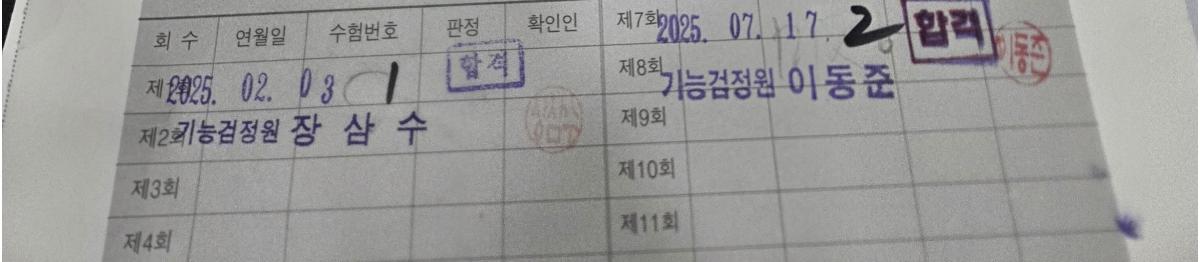 회 수 연월일 수험번호 판정 확인인
제1회 2025. 02. 03 1 합격
제2회 기능검정원 장 삼 수
제3회
제4회
제7회 2025. 07. 17. 2 합격 이동준
제8회 기능검정원 이동준
제9회
제10회
제11회